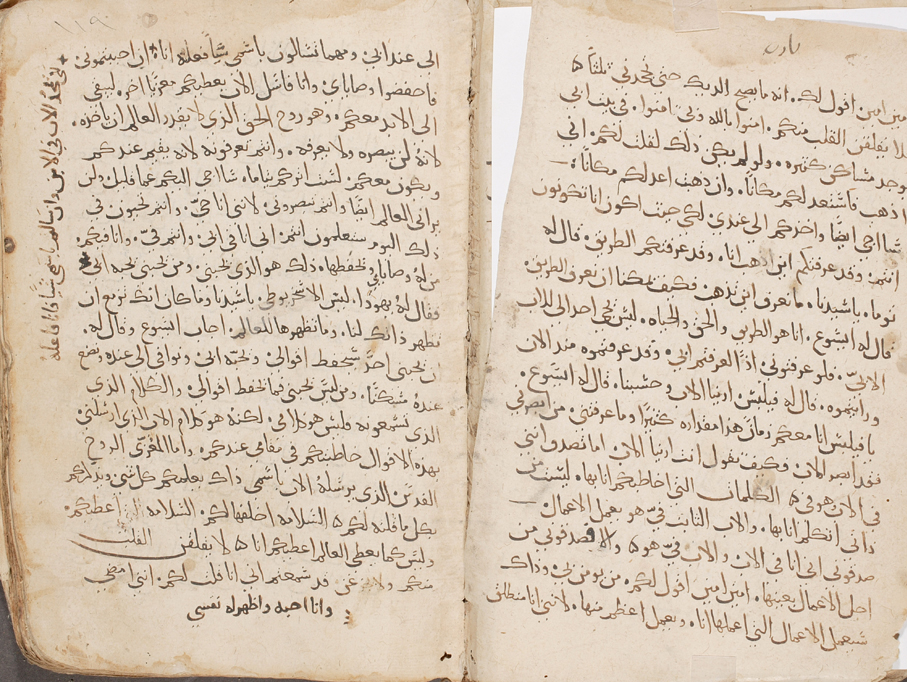 امين امين اقول لك. انه ما يصيح الديك حتى تجحدني ثلثاً ه
لا يقلقن القلب منكم. امنوا بالله وبي امنوا. في بيت ابي
توجد مساكن كثيره. ولو لم يكن ذلك لقلت لكم. اني
اذهب فاستعد لكم مكاناً. وان ذهبت اعد لكم مكاناً.
سااجي ايضًا واخذكم الي عندي. لكي حيث اكون انا تكونون
انتم. وقد عرفتكم اين اذهب انا. وقد عرفتكم الطريق. قال له
توما. ياسيدنا. ما نعرف اين تذهب. وكيف يمكنا ان نعرف الطريق.
قال له ايسوع. انا هو الطريق والحق والحياه. ليس يجي احد الي الاب
الا بيّ. فلو عرفتموني اذاً لعرفتم ابي. وقد عرفتموه منذ الان
ورايتموه. قال له فيلبس. ارينا الاب وحسبنا. قال له ايسوع.
يا فيلبس انا معكم زمانً هذا مقداره كثيرًا وما عرفتني. من ابصرني
فقد ابصر الاب. وكيف تقول انت ارينا الاب. اما تصدق انني
في الاب هو في ه الكلمات التي اخاطبكم انا بها. ليست من
ذاتي اتكلم انا بها. والاب الثابت فيّ هو يعمل الاعمال
صدقوني اني انا في الاب والاب فيّ هو ه والا فصدقوني من
اجل الاعمال بعينها. امين امين اقول لكم. من يومن بي. وذاك
سيعمل الاعمال التي اعملها انا. ويعمل اعظم منها. لانني انا منطلق
الى عند ابي. ومهما تسالون باسمي شياً فعلته انا ان احببتموني
فاحفضوا وصاياي وانا فاسل الاب يعطيكم معزيًا اخر. ليبقى
الى الابد معكم. وهو روح الحق الذي لا يقدر العالم ان ياخذه.
لانه لن يبصره ولا يعرفه. وانتم تعرفونه لانه يقيم عندكم
ويكون معكم. لست اترككم يتاما. سااجي اليكم عما قليل ولن
يراني العالم ايضًا وانتم تبصروني. لانني انا حيّ. وانتم تحيون في
ذلك اليوم ستعلمون انتم. اني انا في ابي. وانتم فيّ. وانا فيكم.
من له وصاياي وتحفظها. ذلك هو الذي يحبني. ومن يحبني يحبه ابي
فقال له يهوذا. ليس الاسخريوطي. ياسيدنا وما كان انك تزمع ان
تظهر ذاتك لنا. وما تظهرها للعالم. اجاب ايسوع وقال له.
ان يحبني احدً سيحفظ اقوالي. ويحبه ابي. ونوافي الي عنده ونضع
عنده مسكنًا. ومن ليس يحبني فما يحفظ اقوالي. والكلام الذي
الذي تسمعونه وليس هو كلامي. لكنه هو كلام الاب الذي ارسلني
بهذه الاقوال خاطبتكم في مقامي عندكم. واما المعزي الروح
القدس الذي يرسله الاب باسمي ذاك يعلمكم كل شي. ويذكركم
بكل ما قلته لكم ه السلامه اخلفها لكم. السلامه اعطيكم.
وليس كما يعطي العالم اعطيكم انا ه لا يقلقن القلب
منكم ولا يجزعن قد سمعتم اني انا قلت لكم. انني امضي
وانا احبه واظهر له نفسي